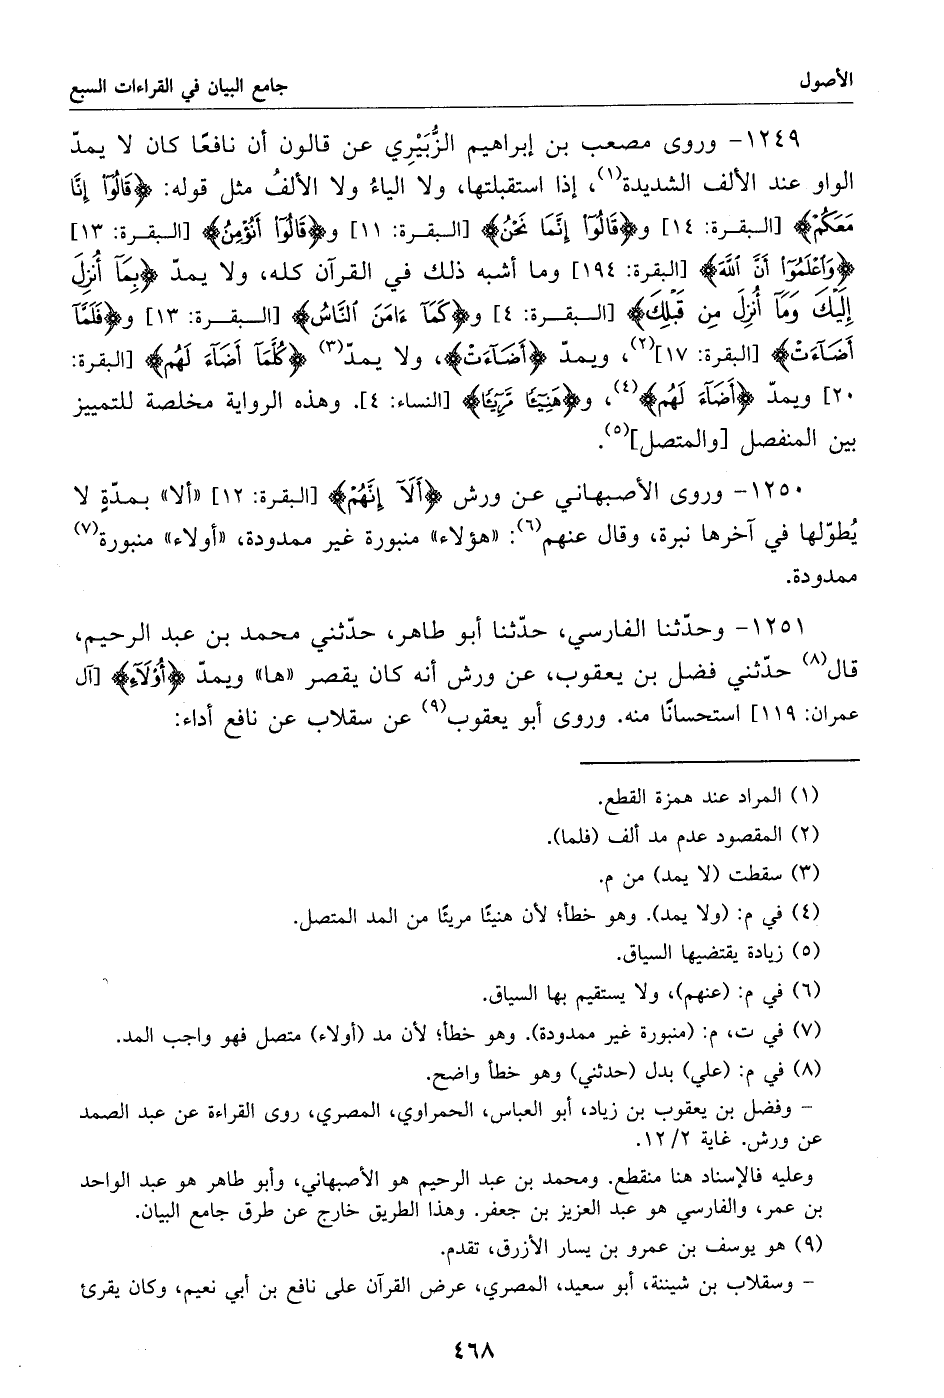 الأصول
جامع البيان في القراءات السبع
١٢٤٩- وروى مصعب بن إبراهيم الزُّبَيْرِي عن قالون أن نافعًا كان لا يمدّ
الواو عند الألف الشديدة(١)، إذا استقبلتها، ولا الياءُ ولا الألفُ مثل قوله: ﴿قَالُوٓا۟ إِنَّا
مَعَكُمْ﴾ [البقرة: ١٤] و﴿قَالُوٓا۟ إِنَّمَا نَحْنُ﴾ [البقرة: ١١] و﴿قَالُوٓا۟ أَنُؤْمِنُ﴾ [البقرة: ١٣]
﴿وَٱعْلَمُوٓا۟ أَنَّ ٱللَّهَ﴾ [البقرة: ١٩٤] وما أشبه ذلك في القرآن كله، ولا يمدّ ﴿بِمَآ أُنزِلَ
إِلَيْكَ وَمَآ أُنزِلَ مِن قَبْلِكَ﴾ [البقرة: ٤] و﴿كَمَآ ءَامَنَ ٱلنَّاسُ﴾ [البقرة: ١٣] و﴿فَلَمَّآ
أَضَآءَتْ﴾ [البقرة: ١٧](٢)، ويمدّ ﴿أَضَآءَتْ﴾، ولا يمدّ(٣) ﴿كُلَّمَآ أَضَآءَ لَهُم﴾ [البقرة:
٢٠] ويمدّ ﴿أَضَآءَ لَهُم﴾(٤)، و﴿هَنِيٓـًٔا مَّرِيٓـًٔا﴾ [النساء: ٤]. وهذه الرواية مخلصة للتمييز
بين المنفصل [والمتصل](٥).
١٢٥٠- وروى الأصبهاني عن ورش ﴿أَلَآ إِنَّهُمْ﴾ [البقرة: ١٢] «ألا» بمدّةٍ لا
يُطوّلها في آخرها نبرة، وقال عنهم(٦): «هؤلاء» منبورة غير ممدودة، «أولاء» منبورة(٧)
ممدودة.
١٢٥١- وحدّثنا الفارسي، حدّثنا أبو طاهر، حدّثني محمد بن عبد الرحيم،
قال(٨) حدّثني فضل بن يعقوب، عن ورش أنه كان يقصر «ها» ويمدّ ﴿أُو۟لَآءِ﴾ [آل
عمران: ١١٩] استحسانًا منه. وروى أبو يعقوب(٩) عن سقلاب عن نافع أداء:
(١) المراد عند همزة القطع.
(٢) المقصود عدم مد ألف (فلما).
(٣) سقطت (لا يمد) من م.
(٤) في م: (ولا يمد). وهو خطأ؛ لأن هنيئًا مريئًا من المد المتصل.
(٥) زيادة يقتضيها السياق.
(٦) في م: (عنهم)، ولا يستقيم بها السياق.
(٧) في ت، م: (منبورة غير ممدودة). وهو خطأ؛ لأن مد (أولاء) متصل فهو واجب المد.
(٨) في م: (علي) بدل (حدثني) وهو خطأ واضح.
- وفضل بن يعقوب بن زياد، أبو العباس، الحمراوي، المصري، روى القراءة عن عبد الصمد
عن ورش. غاية ١٢/٢.
وعليه فالإسناد هنا منقطع. ومحمد بن عبد الرحيم هو الأصبهاني، وأبو طاهر هو عبد الواحد
بن عمر، والفارسي هو عبد العزيز بن جعفر. وهذا الطريق خارج عن طرق جامع البيان.
(٩) هو يوسف بن عمرو بن يسار الأزرق، تقدم.
- وسقلاب بن شيننة، أبو سعيد، المصري، عرض القرآن على نافع بن أبي نعيم، وكان يقرئ
٤٦٨